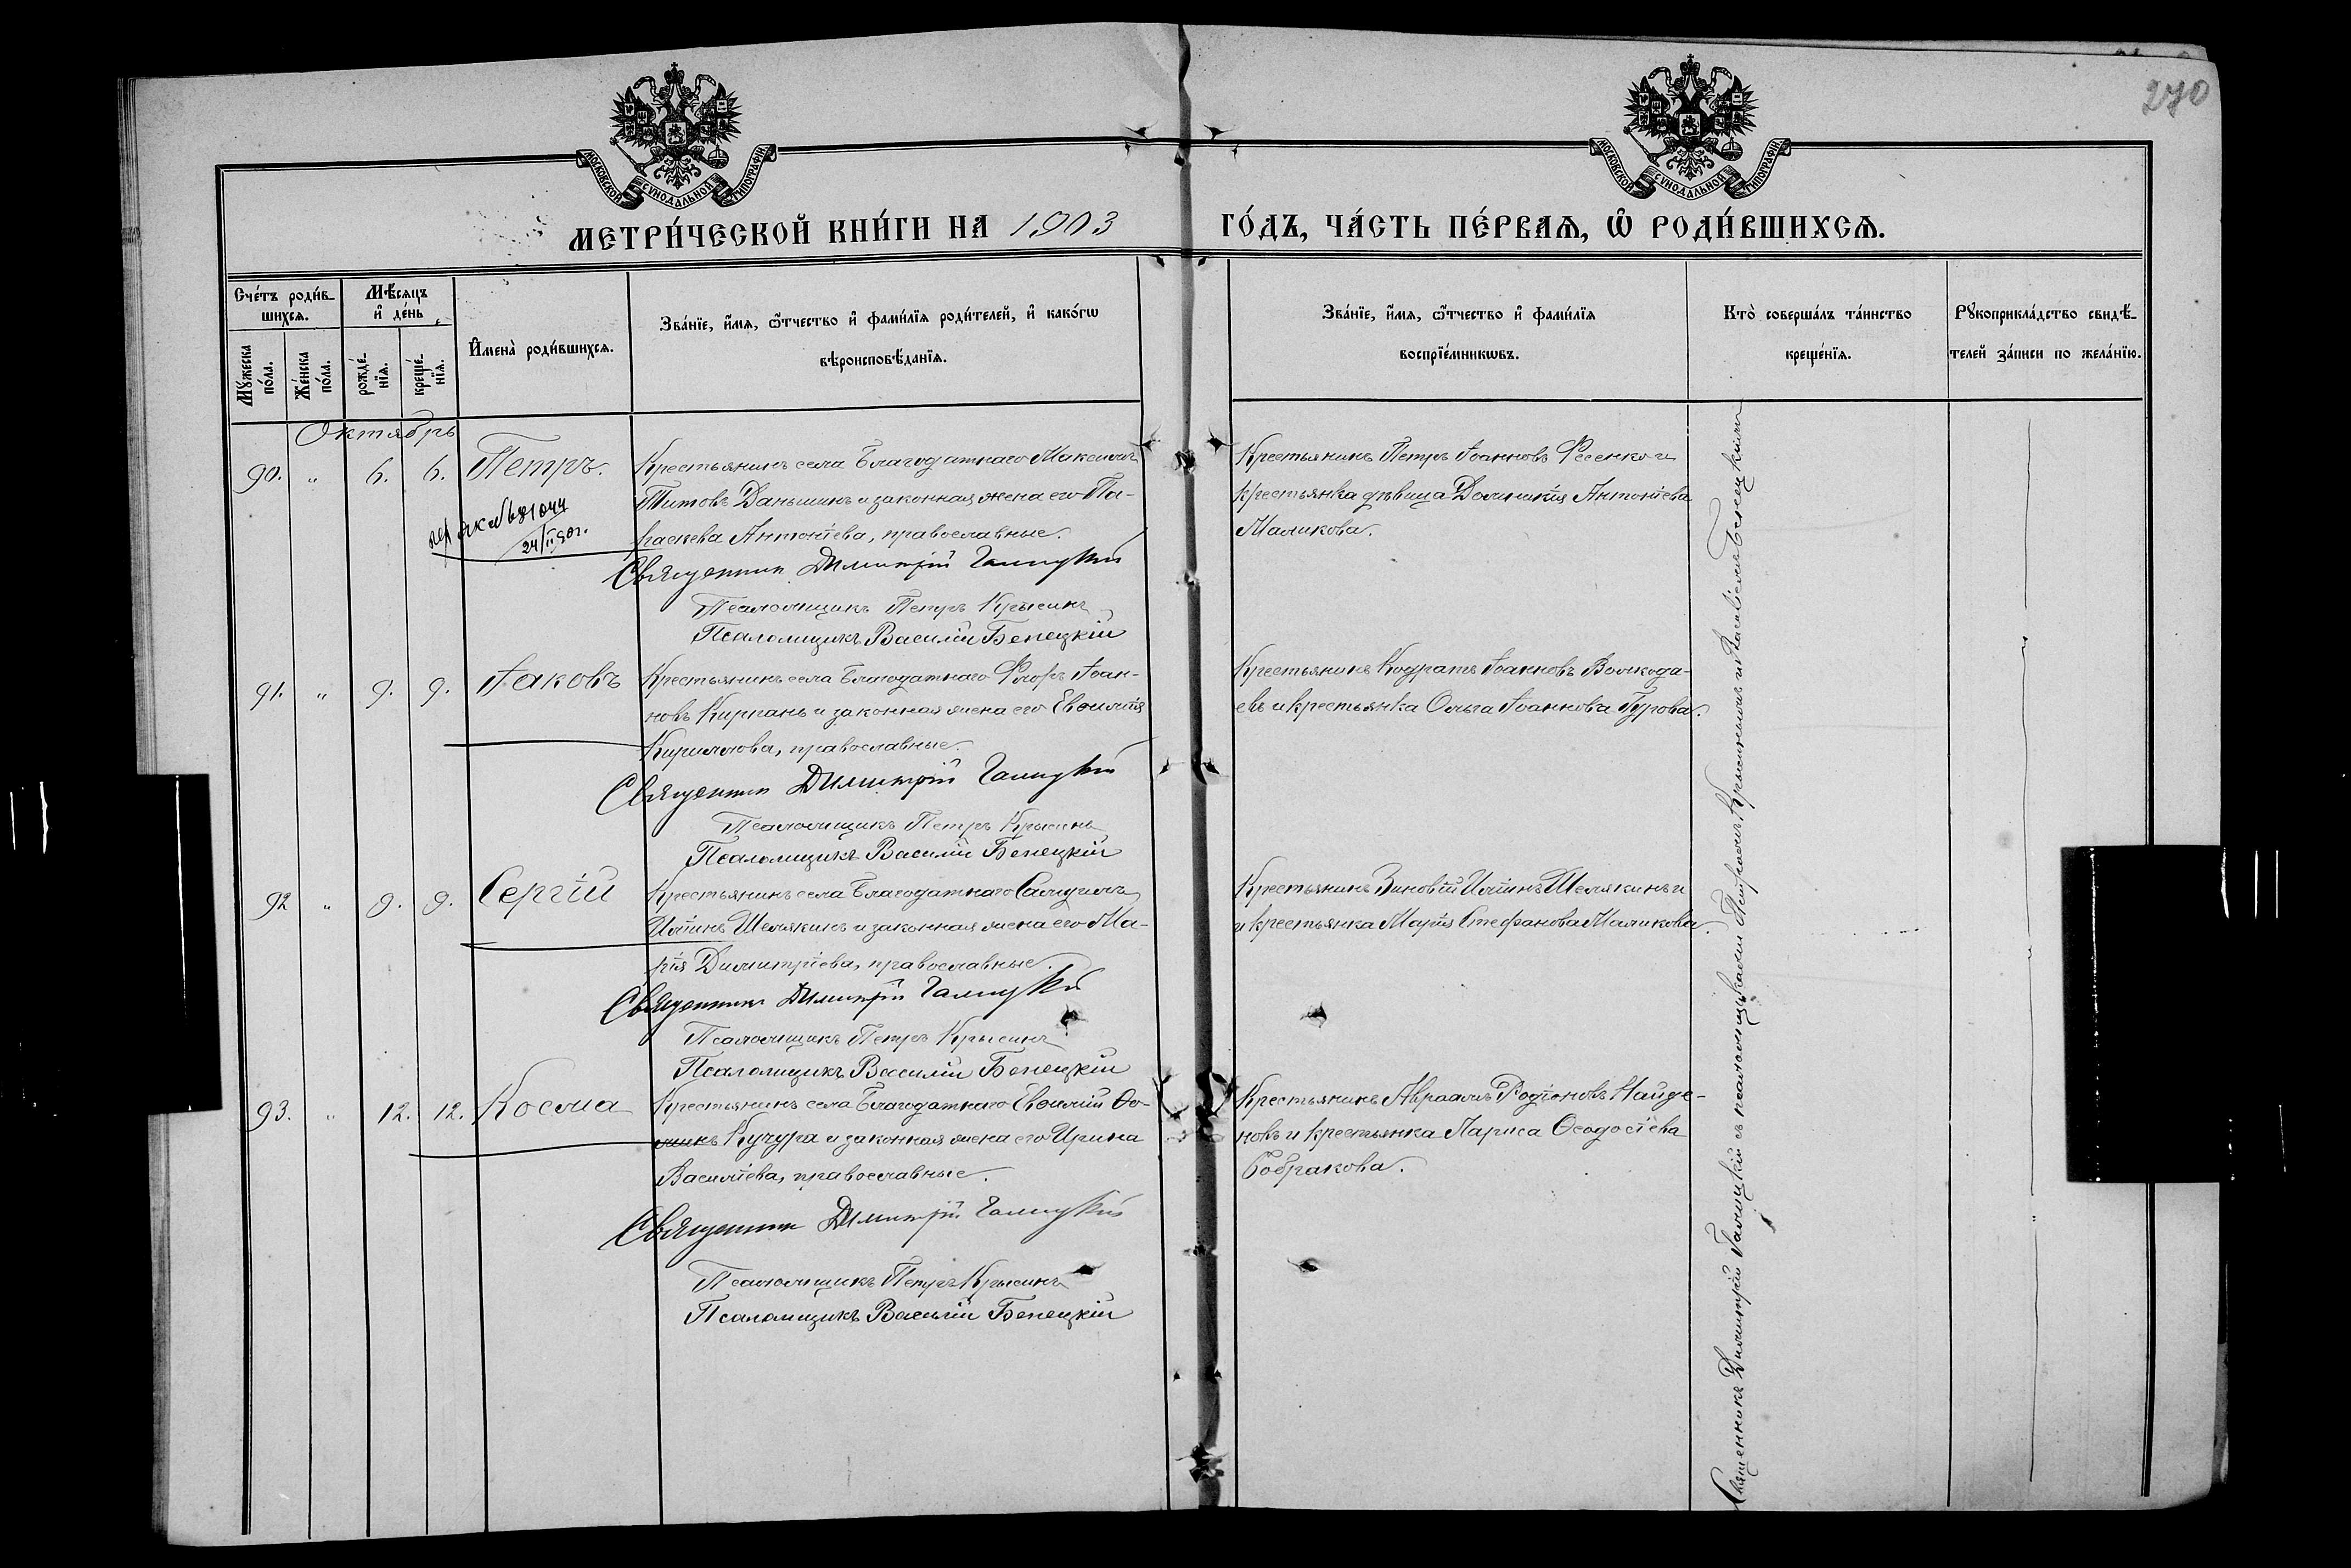 270
МОСКОВСКОЙ СѴНОДАЛЬНОЙ ТИПОГРАФІИ
МОСКОВСКОЙ СѴНОДАЛЬНОЙ ТИПОГРАФІИ
МЕТРИ́ЧЕСКОЙ КНИ́ГИ НА 1903
ГО́ДЪ, ЧА́СТЬ ПЕ́РВАѦ, Ѡ҆ РОДИ́ВШИХСѦ.
Сче́тъ роди́в-
шихсѧ.
Мꙋ́жеска по́ла.
Же́нска по́ла.
Мѣ́сѧцъ
и҆ де́нь
рожде́-
нїѧ.
креще́-
нїѧ.
И҆мена̀ роди́вшихсѧ.
Зва́нїе, и҆́мѧ, ѻ҆́тчество и҆ фами́лїѧ роди́телей, и҆ како́гѡ
вѣроисповѣ́данїѧ.
Зва́нїе, и҆́мѧ, ѻ҆́тчество и҆ фами́лїѧ
воспрїе́мникѡвъ.
Кто̀ соверша́лъ та́инство
креще́нїѧ.
Рꙋкоприкла́дство свидѣ́-
телей за́писи по жела́нїю.
Октябрь
90. „ 6. 6. Петръ.
Крестьянинъ села Благодатнаго Максимъ
Титовъ Даньшинъ и законная жена его Па-
раскева Антонiева, православные.
Священник Димитрiй Галицкiй
Псаломщикъ Петръ Крысинъ
Псаломщикъ Василiй Бенецкiй
Крестьянинъ Петръ Іоанновъ Фесенко и
крестьянка дѣвица Домникiя Антонiева
Маликова.
91. „ 9. 9. Іаковъ
Крестьянинъ села Благодатнаго Флоръ Іоан-
новъ Кирпань и законная жена его Евѳимiя
Кириллова, православные.
Священник Димитрiй Галицкiй
Псаломщикъ Петръ Крысинъ
Псаломщикъ Василiй Бенецкiй
Крестьянинъ Кодратъ Іоанновъ Волкода-
евъ и крестьянка Ольга Іоаннова Гурова.
92 „ 9. 9. Сергiй
Крестьянинъ села Благодатнаго Самуилъ
Илiинъ Шелякинъ и законная жена его Ма-
рiя Димитрiева, православные.
Священник Димитрiй Галицкiй
Псаломщикъ Петръ Крысинъ
Псаломщикъ Василiй Бенецкiй
Крестьянинъ Зиновiй Илiинъ Шелякинъ и
и крестьянка Марiя Стефанова Маликова.
93. „ 12. 12. Косма
Крестьянинъ села Благодатнаго Евѳимiй Ѳо-
минъ Кучура и законная жена его Ирина
Василiева, православные.
Священник Димитрiй Галицкiй
Псаломщикъ Петръ Крысинъ
Псаломщикъ Василiй Бенецкiй
Крестьянинъ Авраамъ Родiоновъ Найде-
новъ и крестьянка Лариса Ѳеодосiева
Бобракова.
Священникъ Димитрiй Галицкiй съ псаломщиками Петромъ Крысинымъ и Василiемъ Бенецкимъ